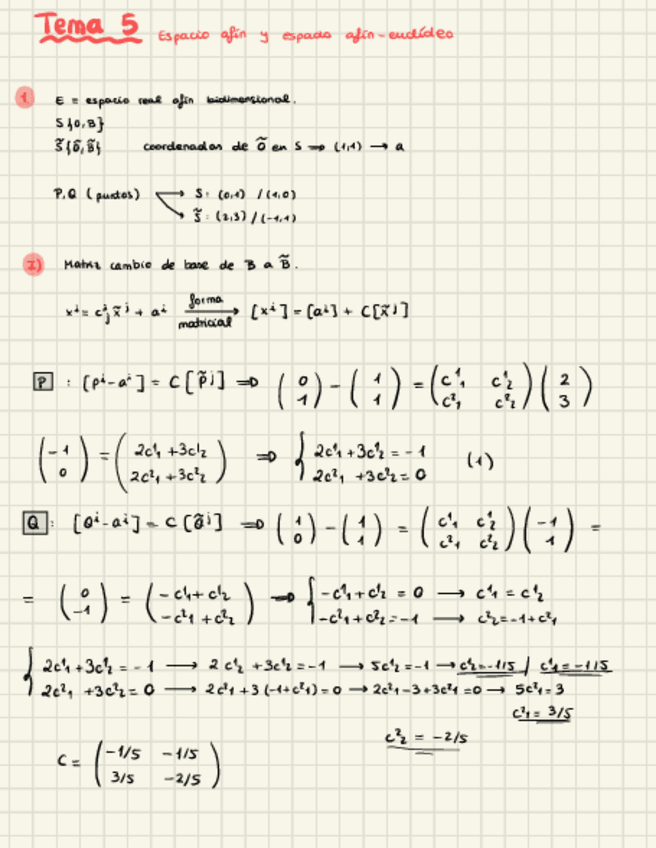 Tema 5 Espacio afín y espacio afín-euclídeo
1. E = espacio real afín bidimensional.
S{O,B}
S̃{Õ,B̃} coordenadas de Õ en S ⇒ (1,1) → a
P,Q (puntos) → S: (0,1) / (1,0)
→ S̃: (2,3) / (-1,1)
I) Matriz cambio de base de B a B̃.
xⁱ = cⁱⱼ x̃ʲ + aⁱ forma matricial → [xⁱ] = [aⁱ] + C[x̃ʲ]
P : [pⁱ-aⁱ] = C[p̃ʲ] ⇒ (0 1) - (1 1) = (c¹₁ c¹₂ c²₁ c²₂) (2 3)
(-1 0) = (2c¹₁ + 3c¹₂ 2c²₁ + 3c²₂) ⇒ { 2c¹₁ + 3c¹₂ = -1 2c²₁ + 3c²₂ = 0 (1)
Q : [Qⁱ-aⁱ] = C[Q̃ʲ] ⇒ (1 0) - (1 1) = (c¹₁ c¹₂ c²₁ c²₂) (-1 1) =
= (0 -1) = (-c¹₁ + c¹₂ -c²₁ + c²₂) ⇒ { -c¹₁ + c¹₂ = 0 → c¹₁ = c¹₂
-c²₁ + c²₂ = -1 → c²₂ = -1 + c²₁
{ 2c¹₁ + 3c¹₂ = -1 → 2c¹₂ + 3c¹₂ = -1 → 5c¹₂ = -1 → c¹₂ = -1/5 / c¹₁ = -1/5
2c²₁ + 3c²₂ = 0 → 2c²₁ + 3(-1+c²₁) = 0 → 2c²₁ - 3 + 3c²₁ = 0 → 5c²₁ = 3
c²₁ = 3/5
c²₂ = -2/5
C = (-1/5 -1/5 3/5 -2/5)